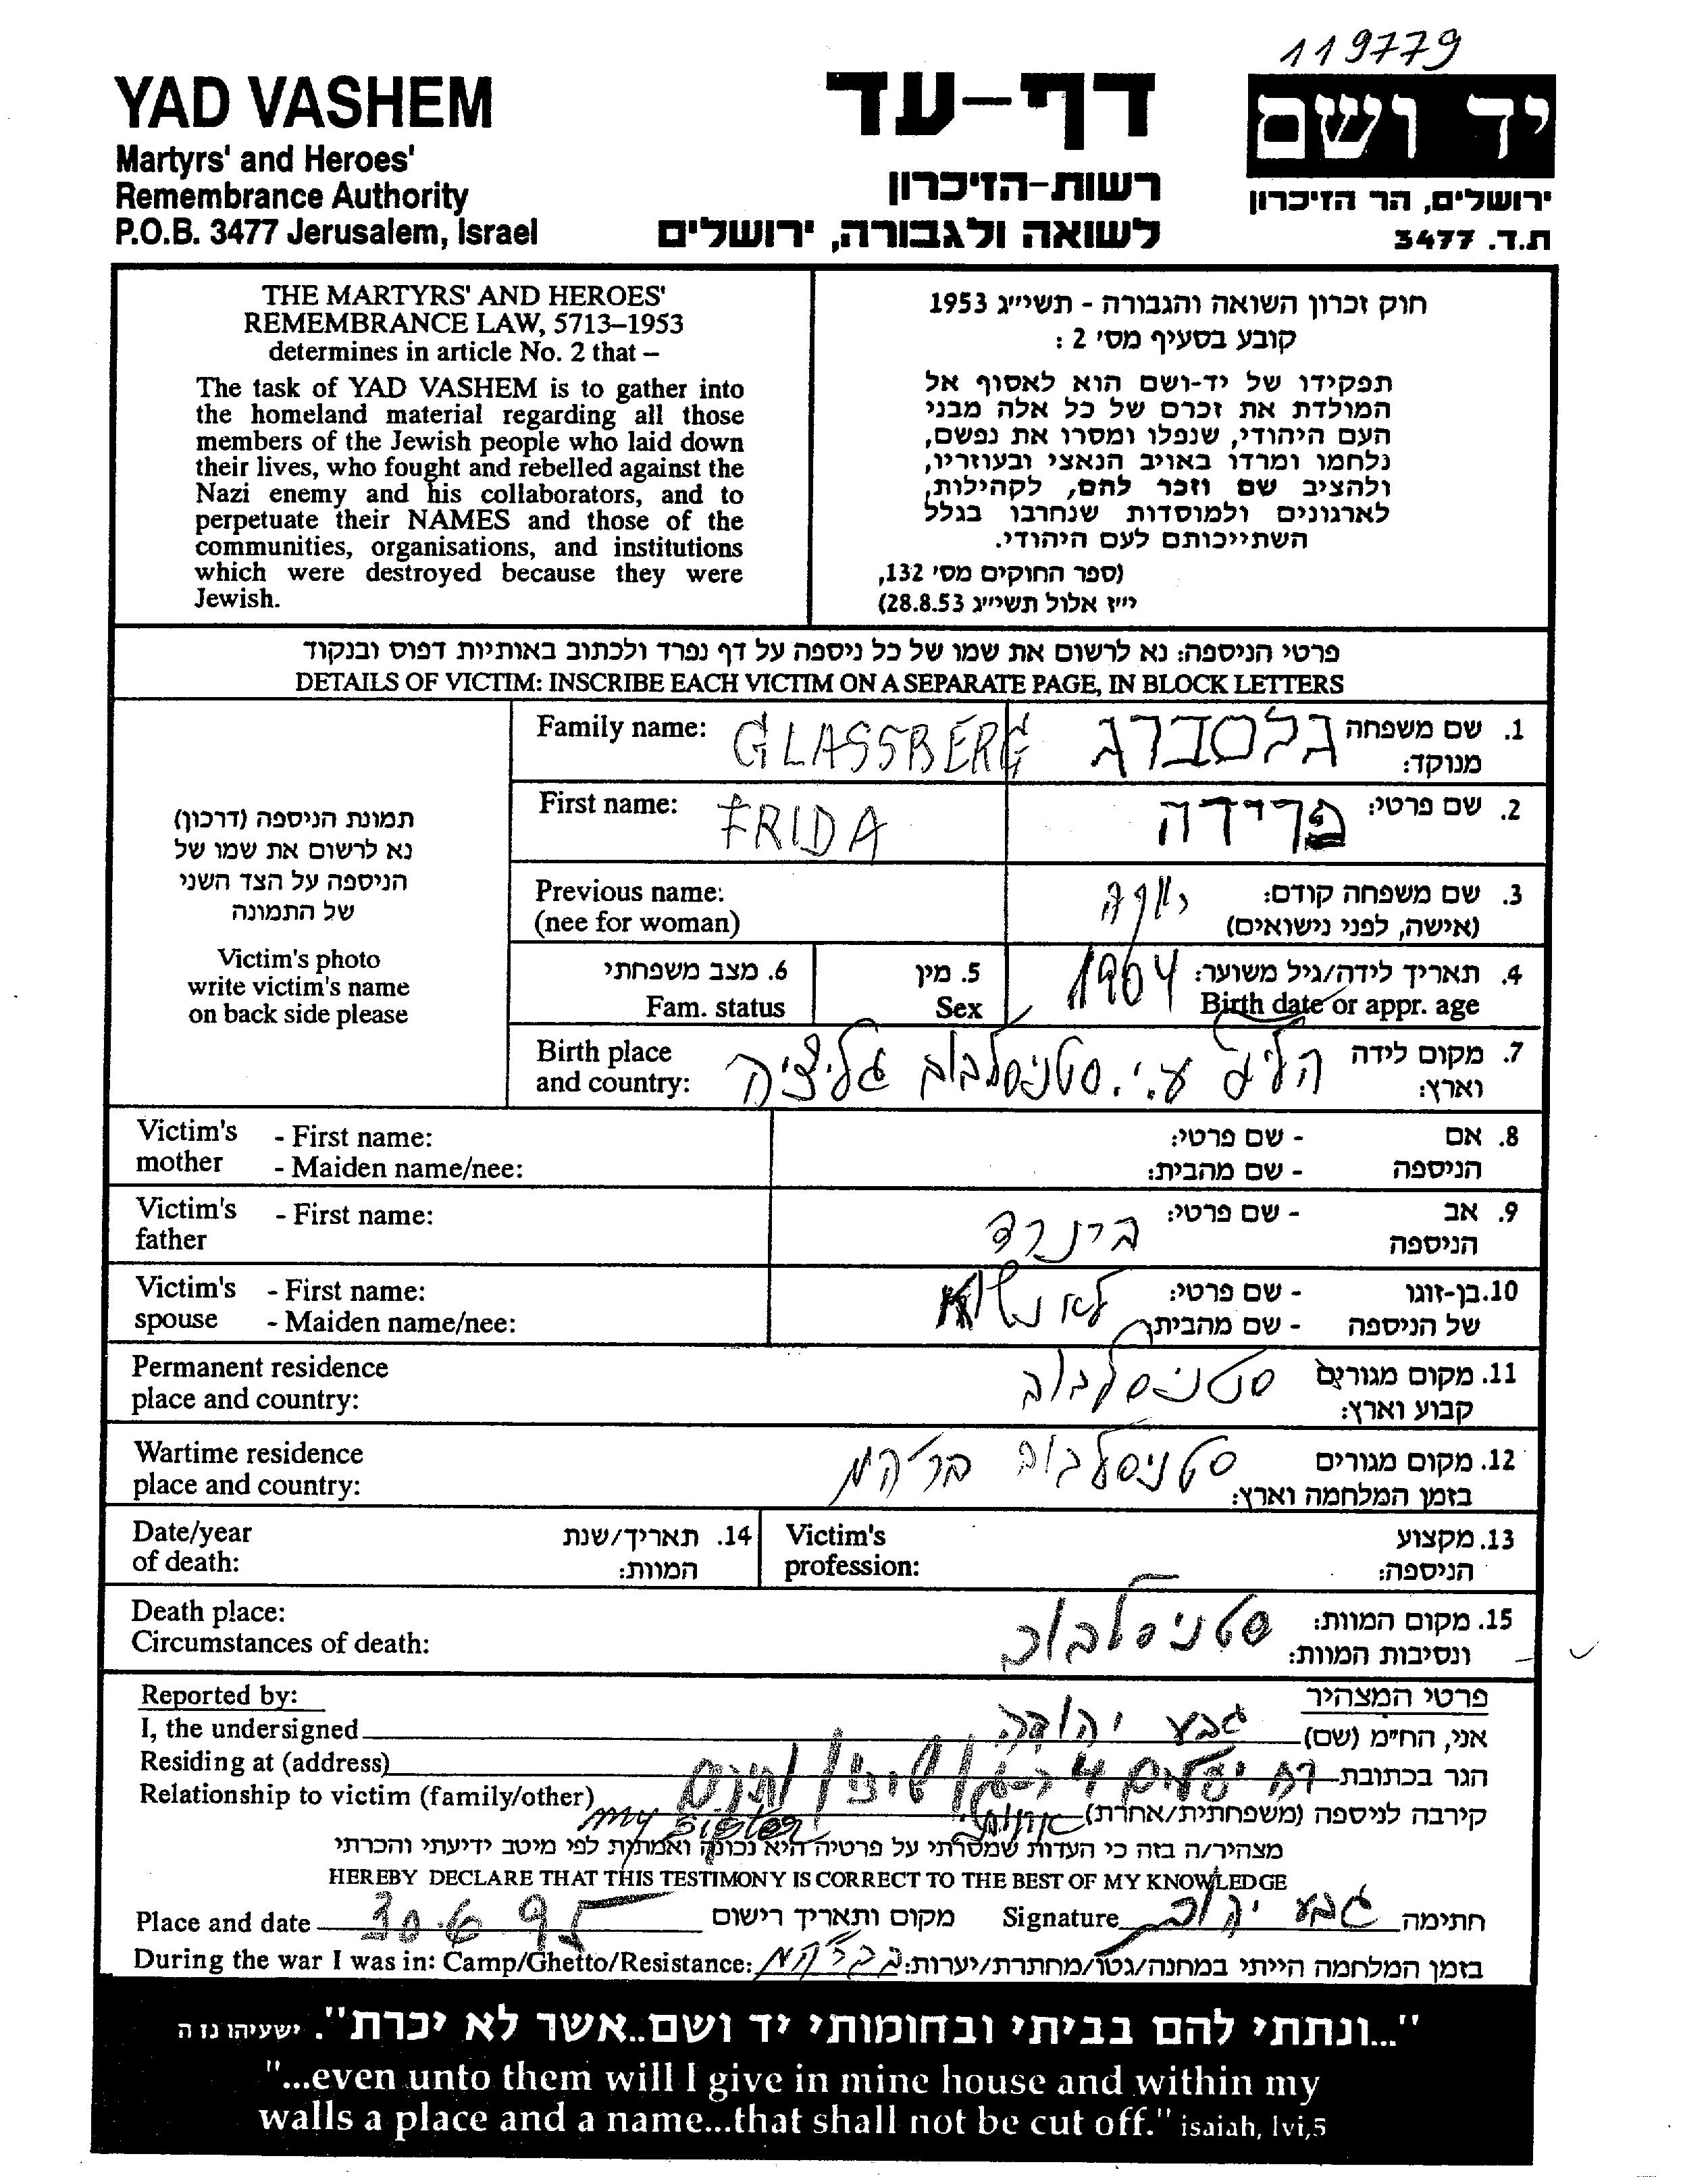 119779
YAD VASHEM
Martyrs' and Heroes'
Remembrance Authority
P.O.B. 3477 Jerusalem, Israel
דף-עד
רשות-הזיכרון
לשואה ולגבורה, ירושלים
יד ושם
ירושלים, הר הזיכרון
ת.ד. 3477
THE MARTYRS' AND HEROES'
REMEMBRANCE LAW, 5713–1953
determines in article No. 2 that –
The task of YAD VASHEM is to gather into
the homeland material regarding all those
members of the Jewish people who laid down
their lives, who fought and rebelled against the
Nazi enemy and his collaborators, and to
perpetuate their NAMES and those of the
communities, organisations, and institutions
which were destroyed because they were
Jewish.
חוק זכרון השואה והגבורה - תשי״ג 1953
קובע בסעיף מס׳ 2 :
תפקידו של יד-ושם הוא לאסוף אל
המולדת את זכרם של כל אלה מבני
העם היהודי, שנפלו ומסרו את נפשם,
נלחמו ומרדו באויב הנאצי ובעוזריו,
ולהציב שם וזכר להם, לקהילות,
לארגונים ולמוסדות שנחרבו בגלל
השתייכותם לעם היהודי.
(ספר החוקים מס׳ 132,
י״ז אלול תשי״ג 28.8.53)
פרטי הניספה: נא לרשום את שמו של כל ניספה על דף נפרד ולכתוב באותיות דפוס ובנקוד
DETAILS OF VICTIM: INSCRIBE EACH VICTIM ON A SEPARATE PAGE, IN BLOCK LETTERS
תמונת הניספה (דרכון)
נא לרשום את שמו של
הניספה על הצד השני
של התמונה
Victim's photo
write victim's name
on back side please
Family name: GLASSBERG גלסברג 1. שם משפחה
מנוקד:
First name: FRIDA פרידה 2. שם פרטי:
Previous name: 3. שם משפחה קודם:
(nee for woman) (אישה, לפני נישואים)
6. מצב משפחתי 5. מין 1904 4. תאריך לידה/גיל משוער:
Fam. status Sex Birth date or appr. age
Birth place 7. מקום לידה
and country: ע.י. סטניסלבוב גליציה וארץ:
Victim's - First name: - שם פרטי: 8. אם
mother - Maiden name/nee: - שם מהבית: הניספה
Victim's - First name: ברנרד - שם פרטי: 9. אב
father הניספה
Victim's - First name: לא - שם פרטי: 10. בן-זוגו
spouse - Maiden name/nee: - שם מהבית: של הניספה
Permanent residence סטניסלבוב 11. מקום מגורים
place and country: קבוע וארץ:
Wartime residence סטניסלבוב 12. מקום מגורים
place and country: בזמן המלחמה וארץ:
Date/year 14. תאריך/שנת Victim's 13. מקצוע
of death: המוות: profession: הניספה:
Death place: סטניסלבוב 15. מקום המוות:
Circumstances of death: ונסיבות המוות:
Reported by: פרטי המצהיר
I, the undersigned גבע יהודה אני, הח״מ (שם)
Residing at (address) הגר בכתובת
Relationship to victim (family/other) my sister אחותי קירבה לניספה (משפחתית/אחרת)
מצהיר/ה בזה כי העדות שמסרתי על פרטיה היא נכונה ואמתית לפי מיטב ידיעתי והכרתי
HEREBY DECLARE THAT THIS TESTIMONY IS CORRECT TO THE BEST OF MY KNOWLEDGE
Place and date 30.6.95 מקום ותאריך רישום Signature גבע יהודה חתימה
During the war I was in: Camp/Ghetto/Resistance: בזמן המלחמה הייתי במחנה/גטו/מחתרת/יערות:
"...ונתתי להם בביתי ובחומותי יד ושם..אשר לא יכרת". ישעיהו נו ה
"...even unto them will I give in mine house and within my
walls a place and a name...that shall not be cut off." isaiah, lvi,5